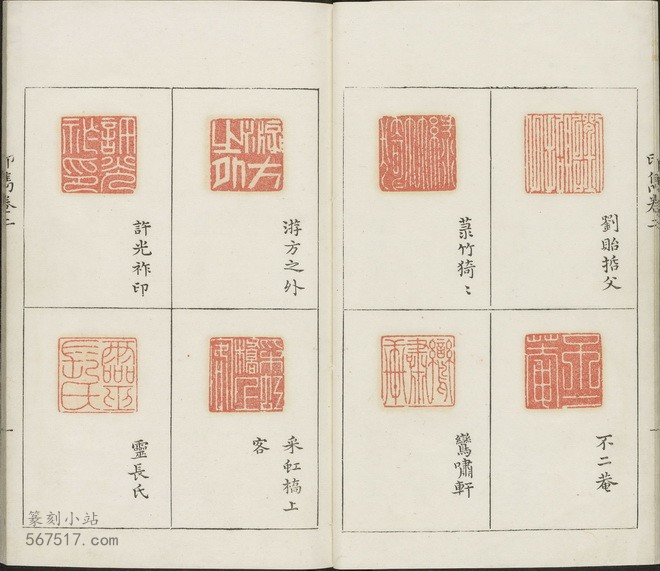 印雋卷二
劉眙哲父
菉竹猗〻
不二菴
鸞嘯軒
游方之外
許光祚印
采虹橋上
客
靈長氏
印雋卷二
篆刻小站
567517.com